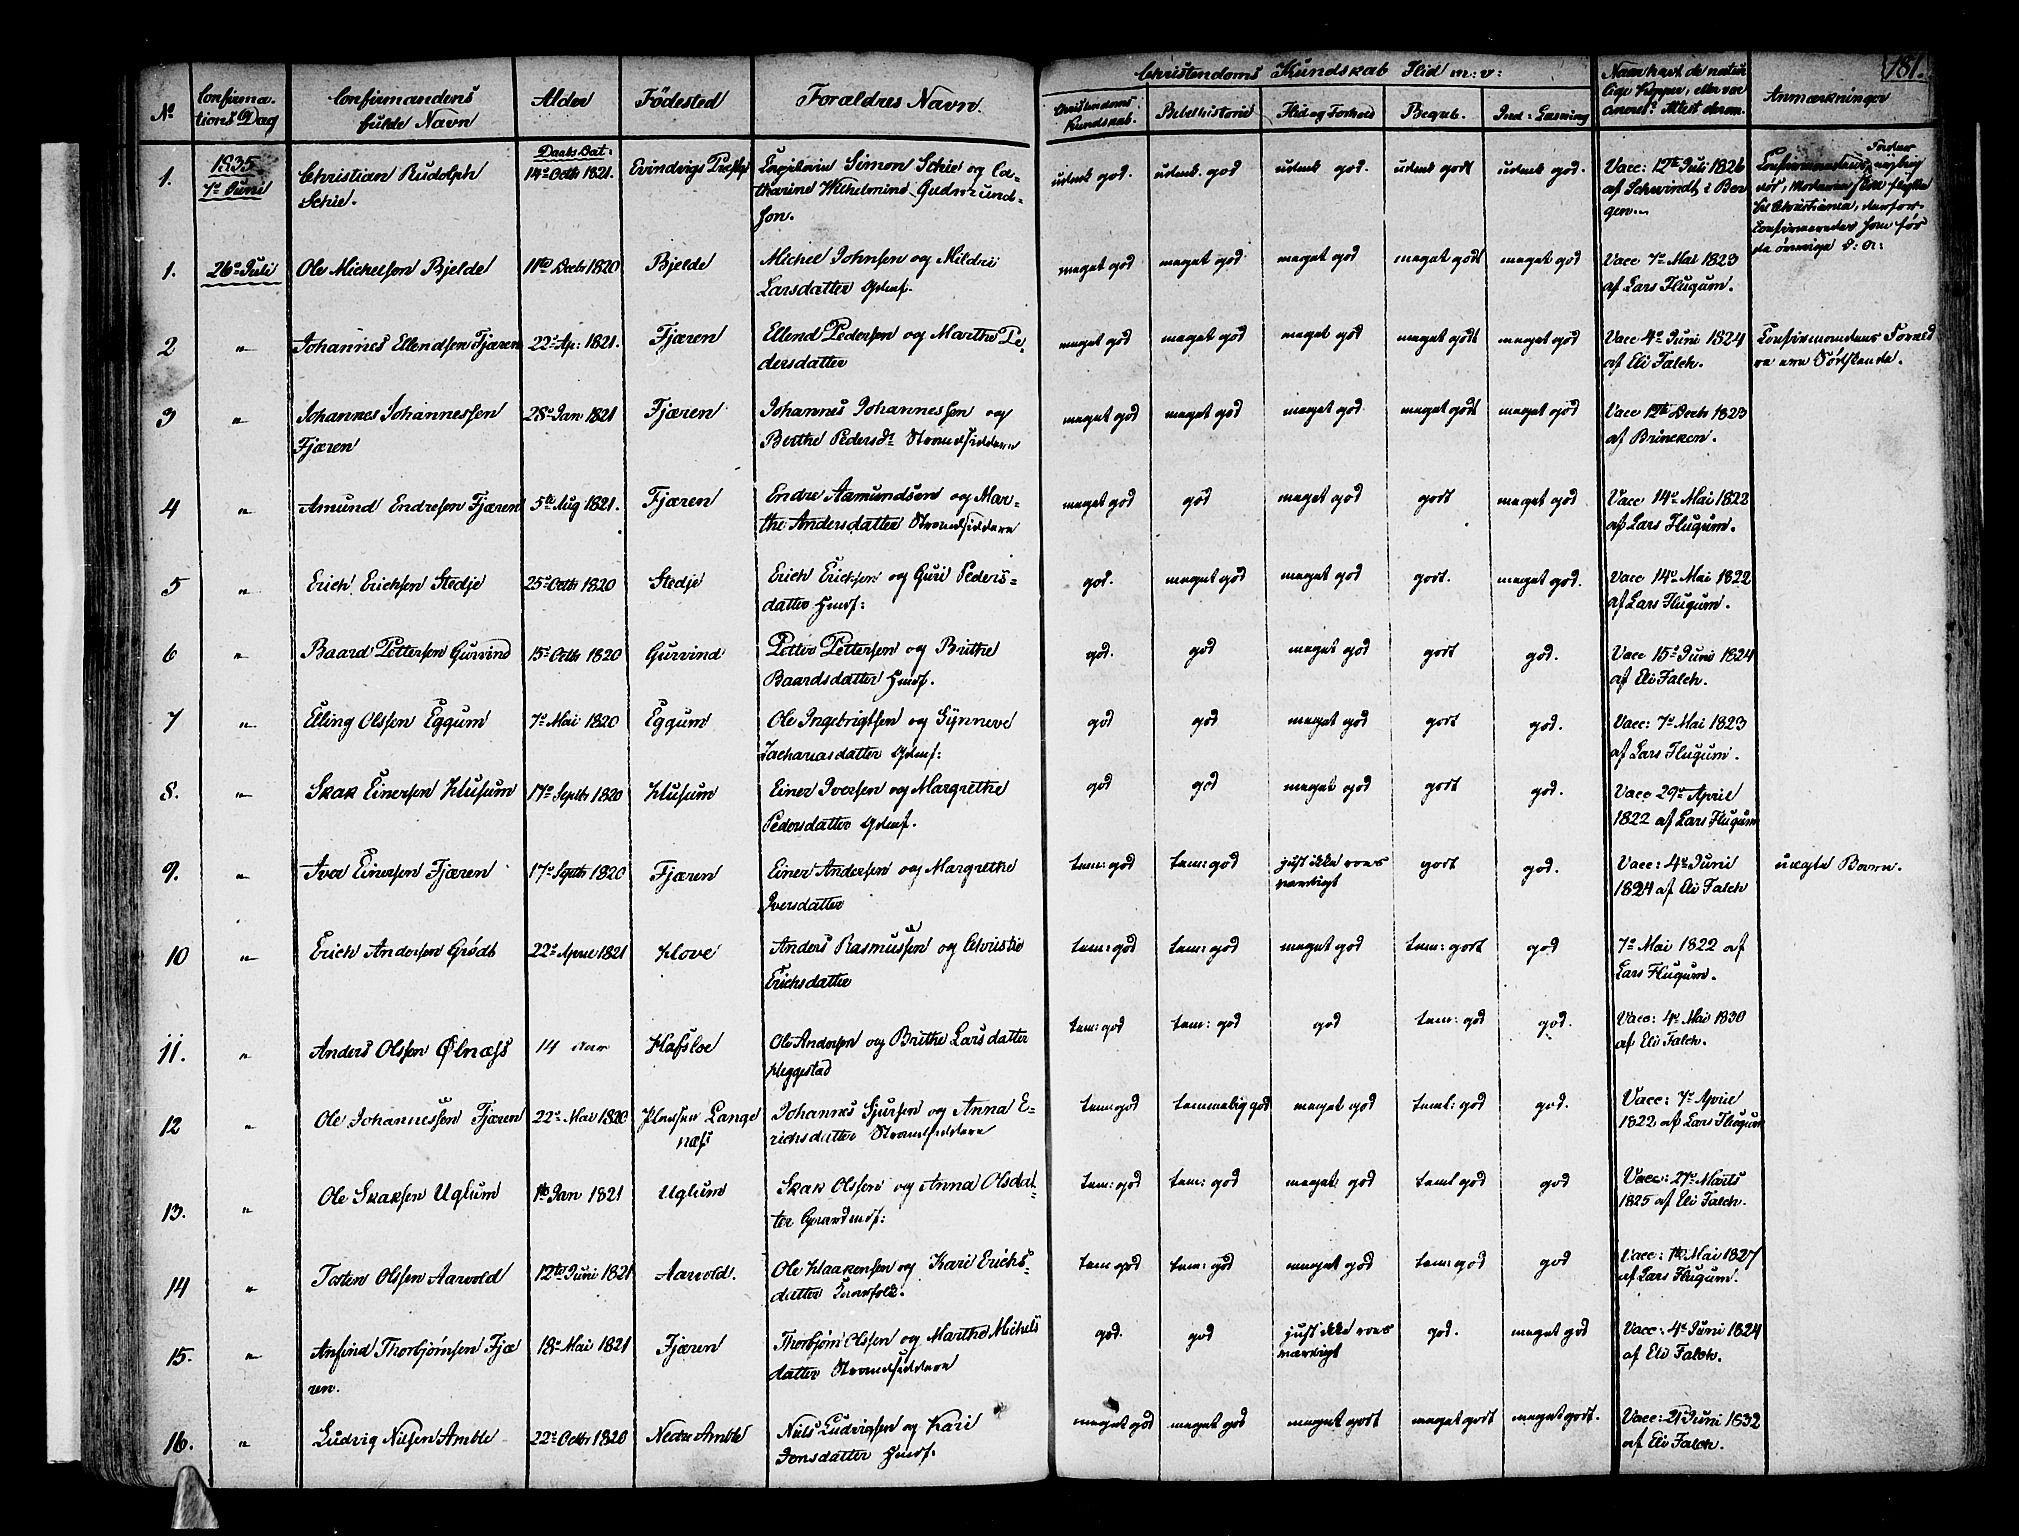 181.
No | Confirma-tions Dag | Confirmandens fulde Navn | Alder | Fødested | Forældres Navn | Christendoms Kundskab Flid m: v: | Anmærkninger
Christendoms Kundskab. | Bibelhistorie | Flid og Forhold | Begreb. | Ind: Læsning
Naar havt de naturlige Kopper, eller vaccineret? Attest derom.
1. | 1835 7de Juni | Christian Rudolph Schie. | Daabs Dat: 14de Octb 1821. | Evindvigs Præstegj | Capitain Simon Schie og Catharine Wilhelmine Gudmundson. | udmk god. | udmk. god | udmk god. | udmk godt | udmk god. | Vacc: 12te Juli 1826 af Schwindt i Bergen. | Confirmandens Fader
til Christiania, derfor
Confirmeredes han før
de øvrige
1. | 26de Juli | Ole Michelsen Bjelde | 11te Decb 1820 | Bjelde | Michel Johnsen og Mildrid Larsdatter Gdmf. | meget god | meget god | meget god | meget godt | meget god | Vacc 7de Mai 1823 af Lars Flugum.
2 | " | Johannes Ellendsen Fjæren | 22de Ap: 1821. | Fjæren | Ellend Pedersen og Marthe Pedersdatter | meget god | meget god | meget god | meget godt | meget god | Vacc 4de Juni 1824 af Eli Falch. | Confirmandens Forældre ere
3 | " | Johannes Johannessen Fjæren | 28de Jan 1821 | Fjæren | Johannes Johannessen og Berthe Pedersd: Strandsiddere | meget god | meget god | meget god | meget godt | meget god | Vacc 12te Decb 1823 af Brincken.
4 | " | Amund Endresen Fjæren | 5te Aug 1821. | Fjæren | Endre Aamundsen og Marthe Andersdatter Strandsiddere | meget god | god | meget god | godt | meget god | Vacc 14de Mai 1822 af Lars Flugum.
5 | " | Erich Erichsen Stedje | 25de Octb 1820 | Stedje | Erich Erichsen og Guri Pedersdatter Hmdf: | god. | meget god | meget god | godt. | meget god. | Vacc 14de Mai 1822 af Lars Flugum.
6 | " | Baard Pettersen Gurvind | 15de Octb 1820 | Gurvind | Petter Pettersen og Brithe Baardsdatter Hmdf. | god. | god | meget god | godt | god. | Vacc 15de Juni 1824 af Eli Falch.
7 | " | Elling Olssen Eggum | 7de Mai 1820 | Eggum | Ole Ingebrigtsen og Synneve Zachariasdatter Gdmf: | god | god | meget god | godt | god. | Vacc: 7de Mai 1823 af Lars Flugum.
8. | " | Skak Einersen Husum | 17de Septb 1820 | Husum | Einer Iversen og Margrethe Pedersdatter Gdmf. | god | god | meget god | godt | god. | Vacc 29de April 1822 af Lars Flugum
9. | " | Iver Einersen Fjæren | 17de Septb 1820 | Fjæren | Einer Andersen og Margrethe Iversdatter | tem: god | tem: god | just ikke rosværdigt | godt | god. | Vacc: 4de Juni 1824 af Eli Falch | uægte Barn.
10 | " | Erich Andersen Grødt | 22de April 1821 | Hove | Anders Rasmussen og Christie Erichsdatter | tem: god | tem: god | meget god | tem: godt | god | 7de Mai 1822 af Lars Flugum.
11. | " | Anders Olssen Ølnæss | 14 Aar | Hafsloe | Ole Andersen og Brithe Larsdatter Heggestad | tem: god | tem: god | god | tem: god | god. | Vacc: 4de Mai 1830 af Eli Falch.
12 | " | Ole Johannessen Fjæren | 22de Mai 1820 | Pladsen Langenæss | Johannes Sjursen og Anna Erichsdatter Strandsiddere | tem: god | temmelig god | meget god | teml: god | god. | Vacc: 7de April 1822 af Lars Flugum
13. | " | Ole Skaksen Uglum | 1te Jan 1821 | Uglum | Skak Olssen og Anna Olsdatter Gaardmdf: | tem: god | tem: god | meget god | teml god | god | Vacc: 27de Marts 1825 af Eli Falch.
14 | " | Tosten Olssen Aarvold | 12te Juni 1821 | Aarvold. | Ole Haakensen og Kari Erichsdatter | tem god | tem: god | meget god | tem: god | god | Vacc: 1te Mai 1827 af Lars Flugum.
15. | " | Anfind Thorbjørnsen Fjæren. | 18de Mai 1821 | Fjæren | Thorbjørn Olssen og Marthe Michelsdatter Strandsiddere | god. | god | just ikke rosværdigt | god. | meget god | Vacc: 4de Juni 1824 af Eli Falch.
16. | " | Ludvig Nilsen Amble | 22de Octb 1820 | Nedre Amble | Niels Ludvigsen og Kari Jonsdatter Hmdf: | meget god | meget god | meget godt | meget godt | meget godt. | Vacc: 21 Juni 1832 af Eli Falch.